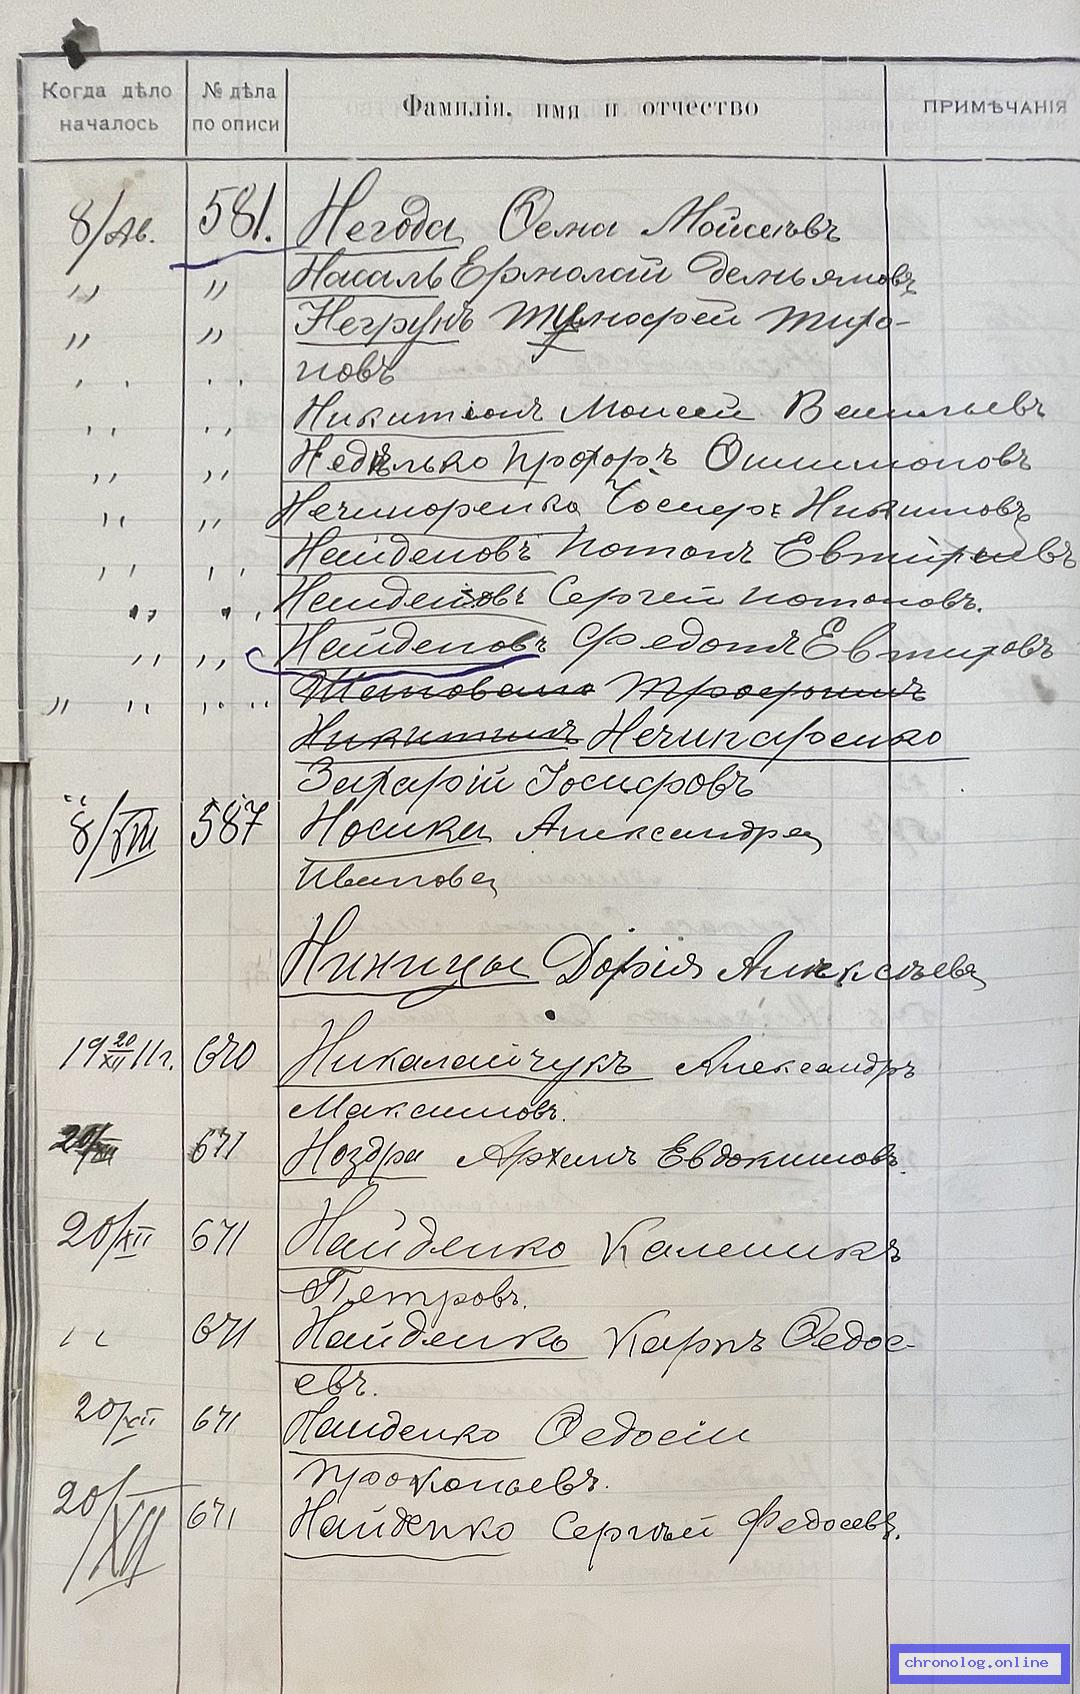 Когда дѣло началось
№ дѣла по описи
Фамилія, имя и отчество
ПРИМѢЧАНІЯ
8/Ав. 581. Негода Ѳома Мойсеевъ
" " Насаль Ермолай Демьяновъ
" " Негрунъ Тимофей Миро-
новъ
" " Никитюкъ Моисей Васильевъ
" " Недѣлько Прохоръ Филимоновъ
" " Нечипоренко Іосифъ Никитовъ
" " Найденовъ Потапъ
" " Найденовъ Сергей Потаповъ.
" " Найденовъ Федотъ
" " " Трофимъ
Никитинъ Нечипоренко
Захарій Іосифовъ
8/VIII 587 Носика Александра
Иванова
Дарія Алексѣева
19 20/XII 11 г. 670 Николайчукъ Александръ
Максимовъ.
20/XII 671 Ноздра Архипъ Евдокимовъ.
20/XII 671 Найденко Каленикъ
Петровъ.
" 671 Найденко Карпъ Ѳедос-
евъ.
20/XII 671 Найденко Ѳедосій
Прокопьевъ.
20/XII 671 Найденко Сергѣй Федосеевъ.
chronolog.online